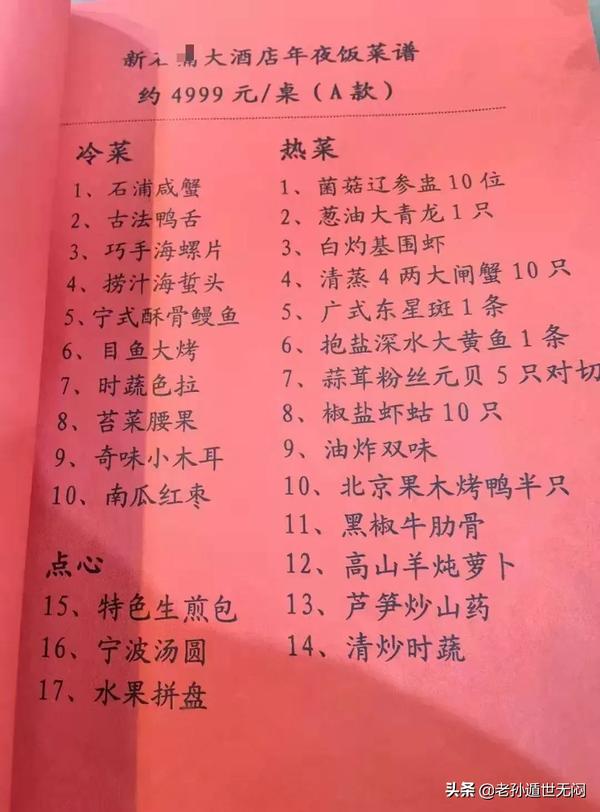 新 大酒店年夜饭菜谱
约 4999 元/桌（A 款）
冷菜
1、石浦咸蟹
2、古法鸭舌
3、巧手海螺片
4、捞汁海蜇头
5、宁式酥骨鳗鱼
6、目鱼大烤
7、时蔬色拉
8、苔菜腰果
9、奇味小木耳
10、南瓜红枣
点心
15、特色生煎包
16、宁波汤圆
17、水果拼盘
热菜
1、菌菇辽参盅 10 位
2、葱油大青龙 1 只
3、白灼基围虾
4、清蒸 4 两大闸蟹 10 只
5、广式东星斑 1 条
6、抱盐深水大黄鱼 1 条
7、蒜茸粉丝元贝 5 只对切
8、椒盐虾蛄 10 只
9、油炸双味
10、北京果木烤鸭半只
11、黑椒牛肋骨
12、高山羊炖萝卜
13、芦笋炒山药
14、清炒时蔬
头条 @老孙遁世无闷